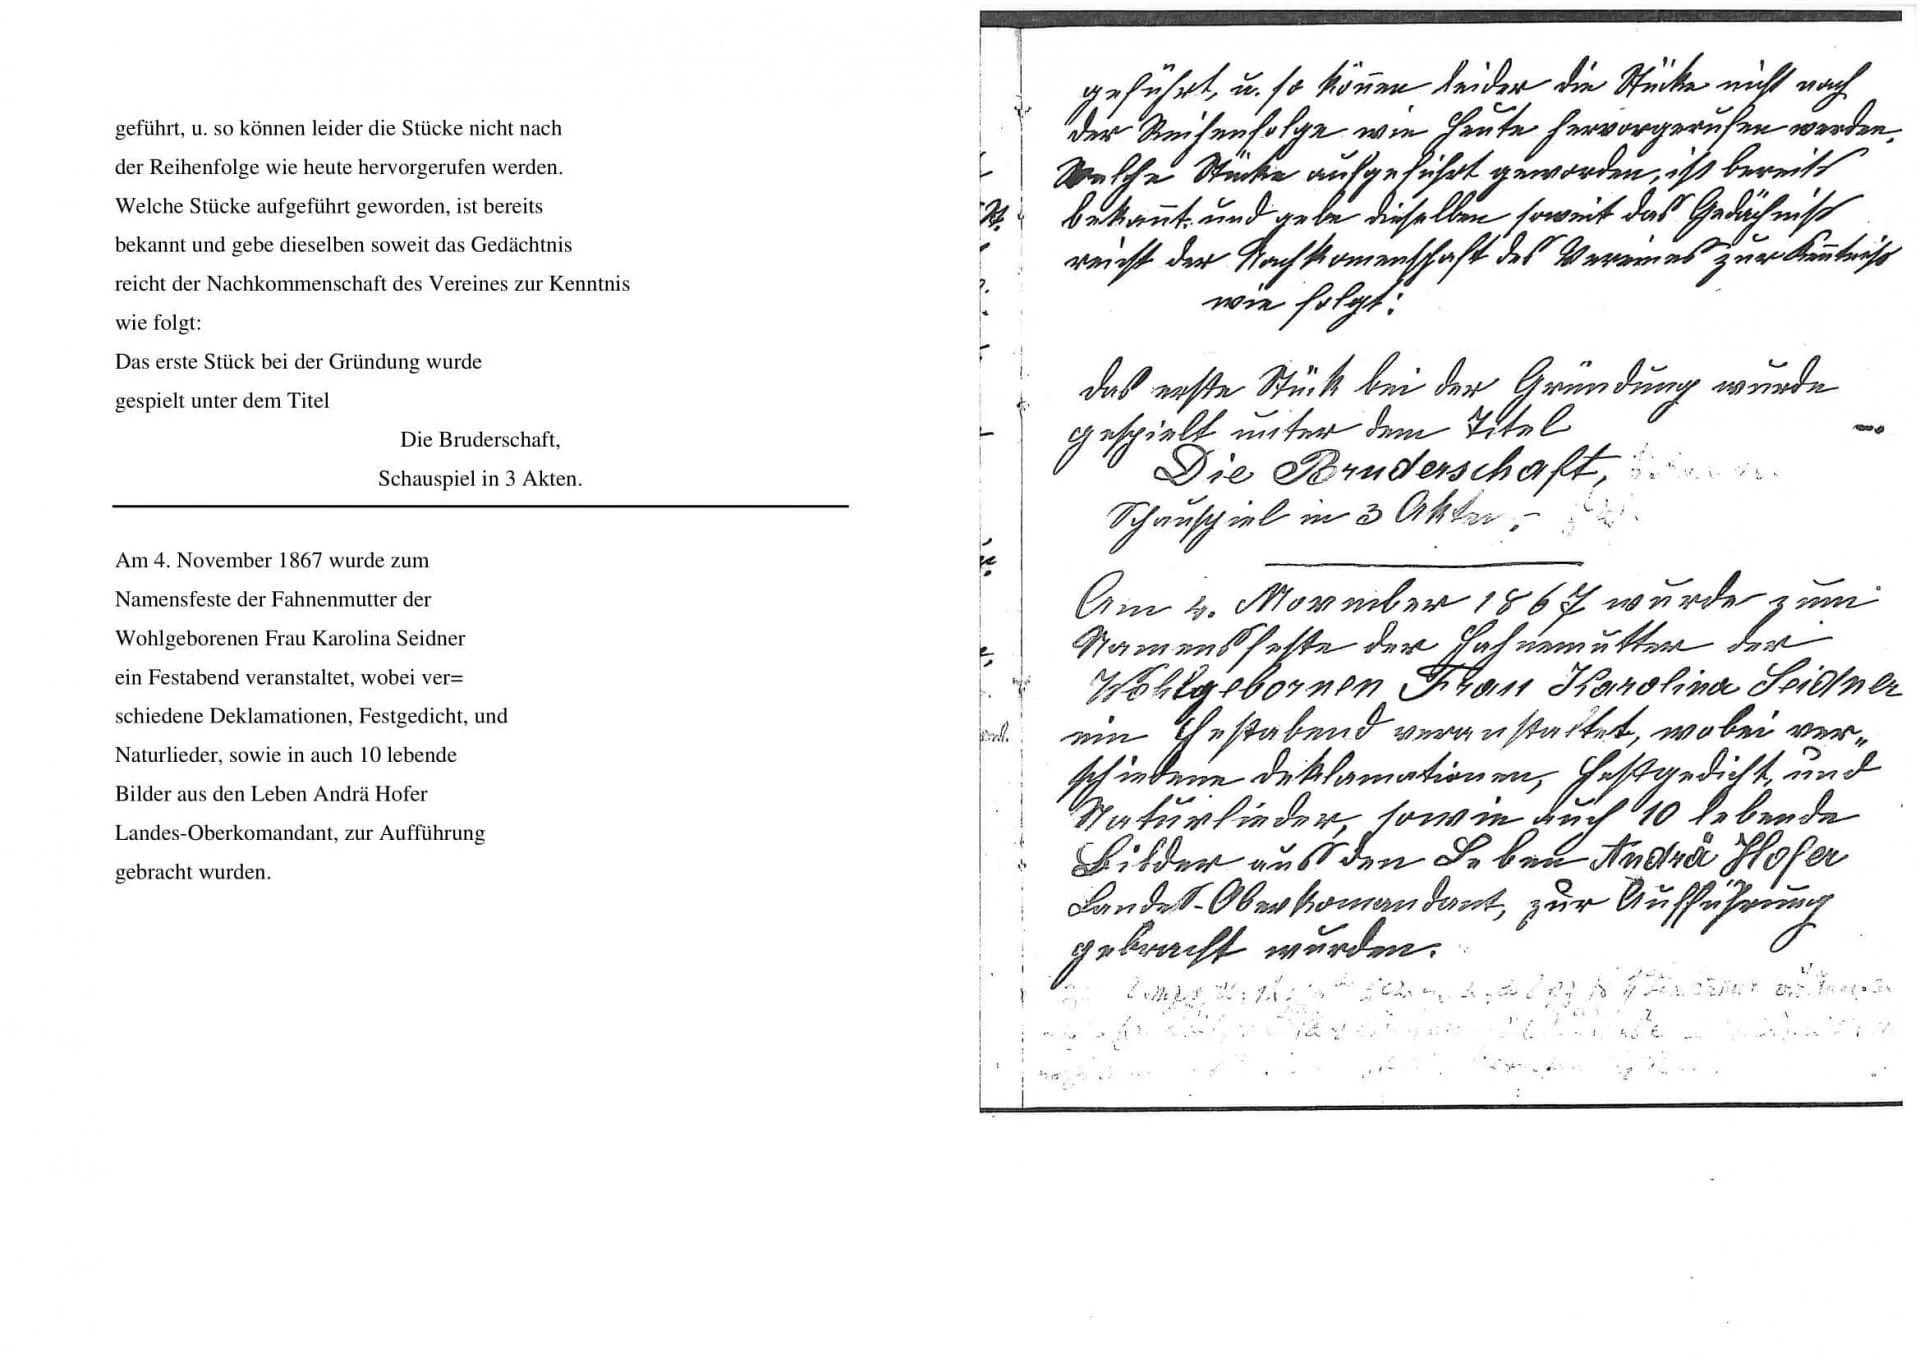 geführt, u. so können leider die Stücke nicht nach
der Reihenfolge wie heute hervorgerufen werden.
Welche Stücke aufgeführt geworden, ist bereits
bekannt und gebe dieselben soweit das Gedächtnis
reicht der Nachkommenschaft des Vereines zur Kenntnis
wie folgt:
Das erste Stück bei der Gründung wurde
gespielt unter dem Titel
Die Bruderschaft,
Schauspiel in 3 Akten.
Am 4. November 1867 wurde zum
Namensfeste der Fahnenmutter der
Wohlgeborenen Frau Karolina Seidner
ein Festabend veranstaltet, wobei ver=
schiedene Deklamationen, Festgedicht, und
Naturlieder, sowie in auch 10 lebende
Bilder aus den Leben Andrä Hofer
Landes-Oberkomandant, zur Aufführung
gebracht wurden.
geführt, u. so könen leider die Stücke nicht nach
der Reihenfolge wie heute hervorgerufen werden.
Welche Stücke aufgeführt geworden, ist bereits
bekañt und gebe dieselben soweit das Gedächniß
reicht der Nachkomenschaft des Vereines zur Keñtniß
wie folgt:
das erste Stück bei der Gründung wurde
gespielt unter dem Titel
Die Bruderschaft,
Schauspiel in 3 Akten.
Am 4. November 1867 wurde zum
Namensfeste der Fahnemutter der
Wohlgebornen Frau Karolina Seidner
ein Festabend veranstaltet, wobei ver„
schiedene deklamationen, Festgedicht, und
Naturlieder, sowie auch 10 lebende
Bilder aus den Leben Andrä Hofer
Landes-Oberkomandant, zur Aufführung
gebracht wurden.